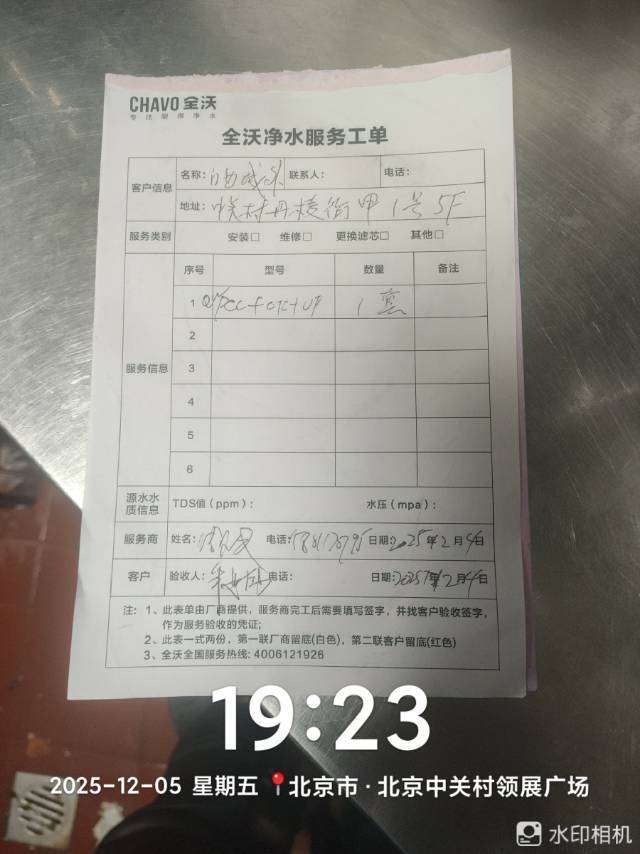 CHAVO 全沃
专注厨房净水
全沃净水服务工单
客户信息 名称： 联系人： 电话：
地址：中关村丹棱街甲1号5F
服务类别 安装□ 维修□ 更换滤芯□ 其他□
服务信息 序号 型号 数量 备注
1 1
2
3
4
5
6
源水水质信息 TDS值（ppm）： 水压（mpa）：
服务商 姓名： 电话： 日期：2025年12月4日
客户 验收人： 电话： 日期：2025年12月4日
注：1、此表单由厂商提供，服务商完工后需要填写签字，并找客户验收签字，
作为服务验收的凭证；
2、此表一式两份，第一联厂商留底(白色)，第二联客户留底(红色)
3、全沃全国服务热线：4006121926
19:23
2025-12-05 星期五 北京市·北京中关村领展广场
水印相机